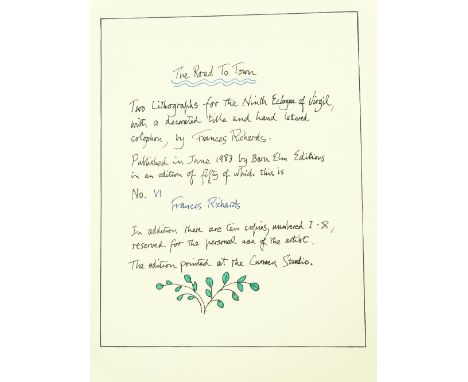 The Road To Town
Two Lithographs for the Ninth Eclogue of Virgil,
with a decorated title and hand lettered
colophon, by Frances Richards.
Published in June 1983 by Barn Elm Editions
in an edition of fifty of which this is
No. VI
Frances Richards
In addition there are ten copies, numbered I - X,
reserved for the personal use of the artist.
The edition printed at the Curwen Studio.